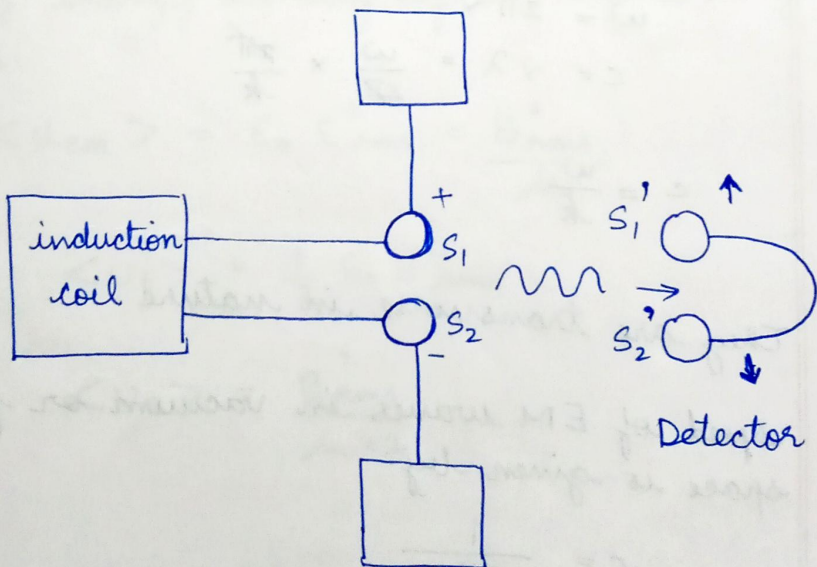 induction
coil
+
S₁
S₂
-
S₁'
S₂'
Detector